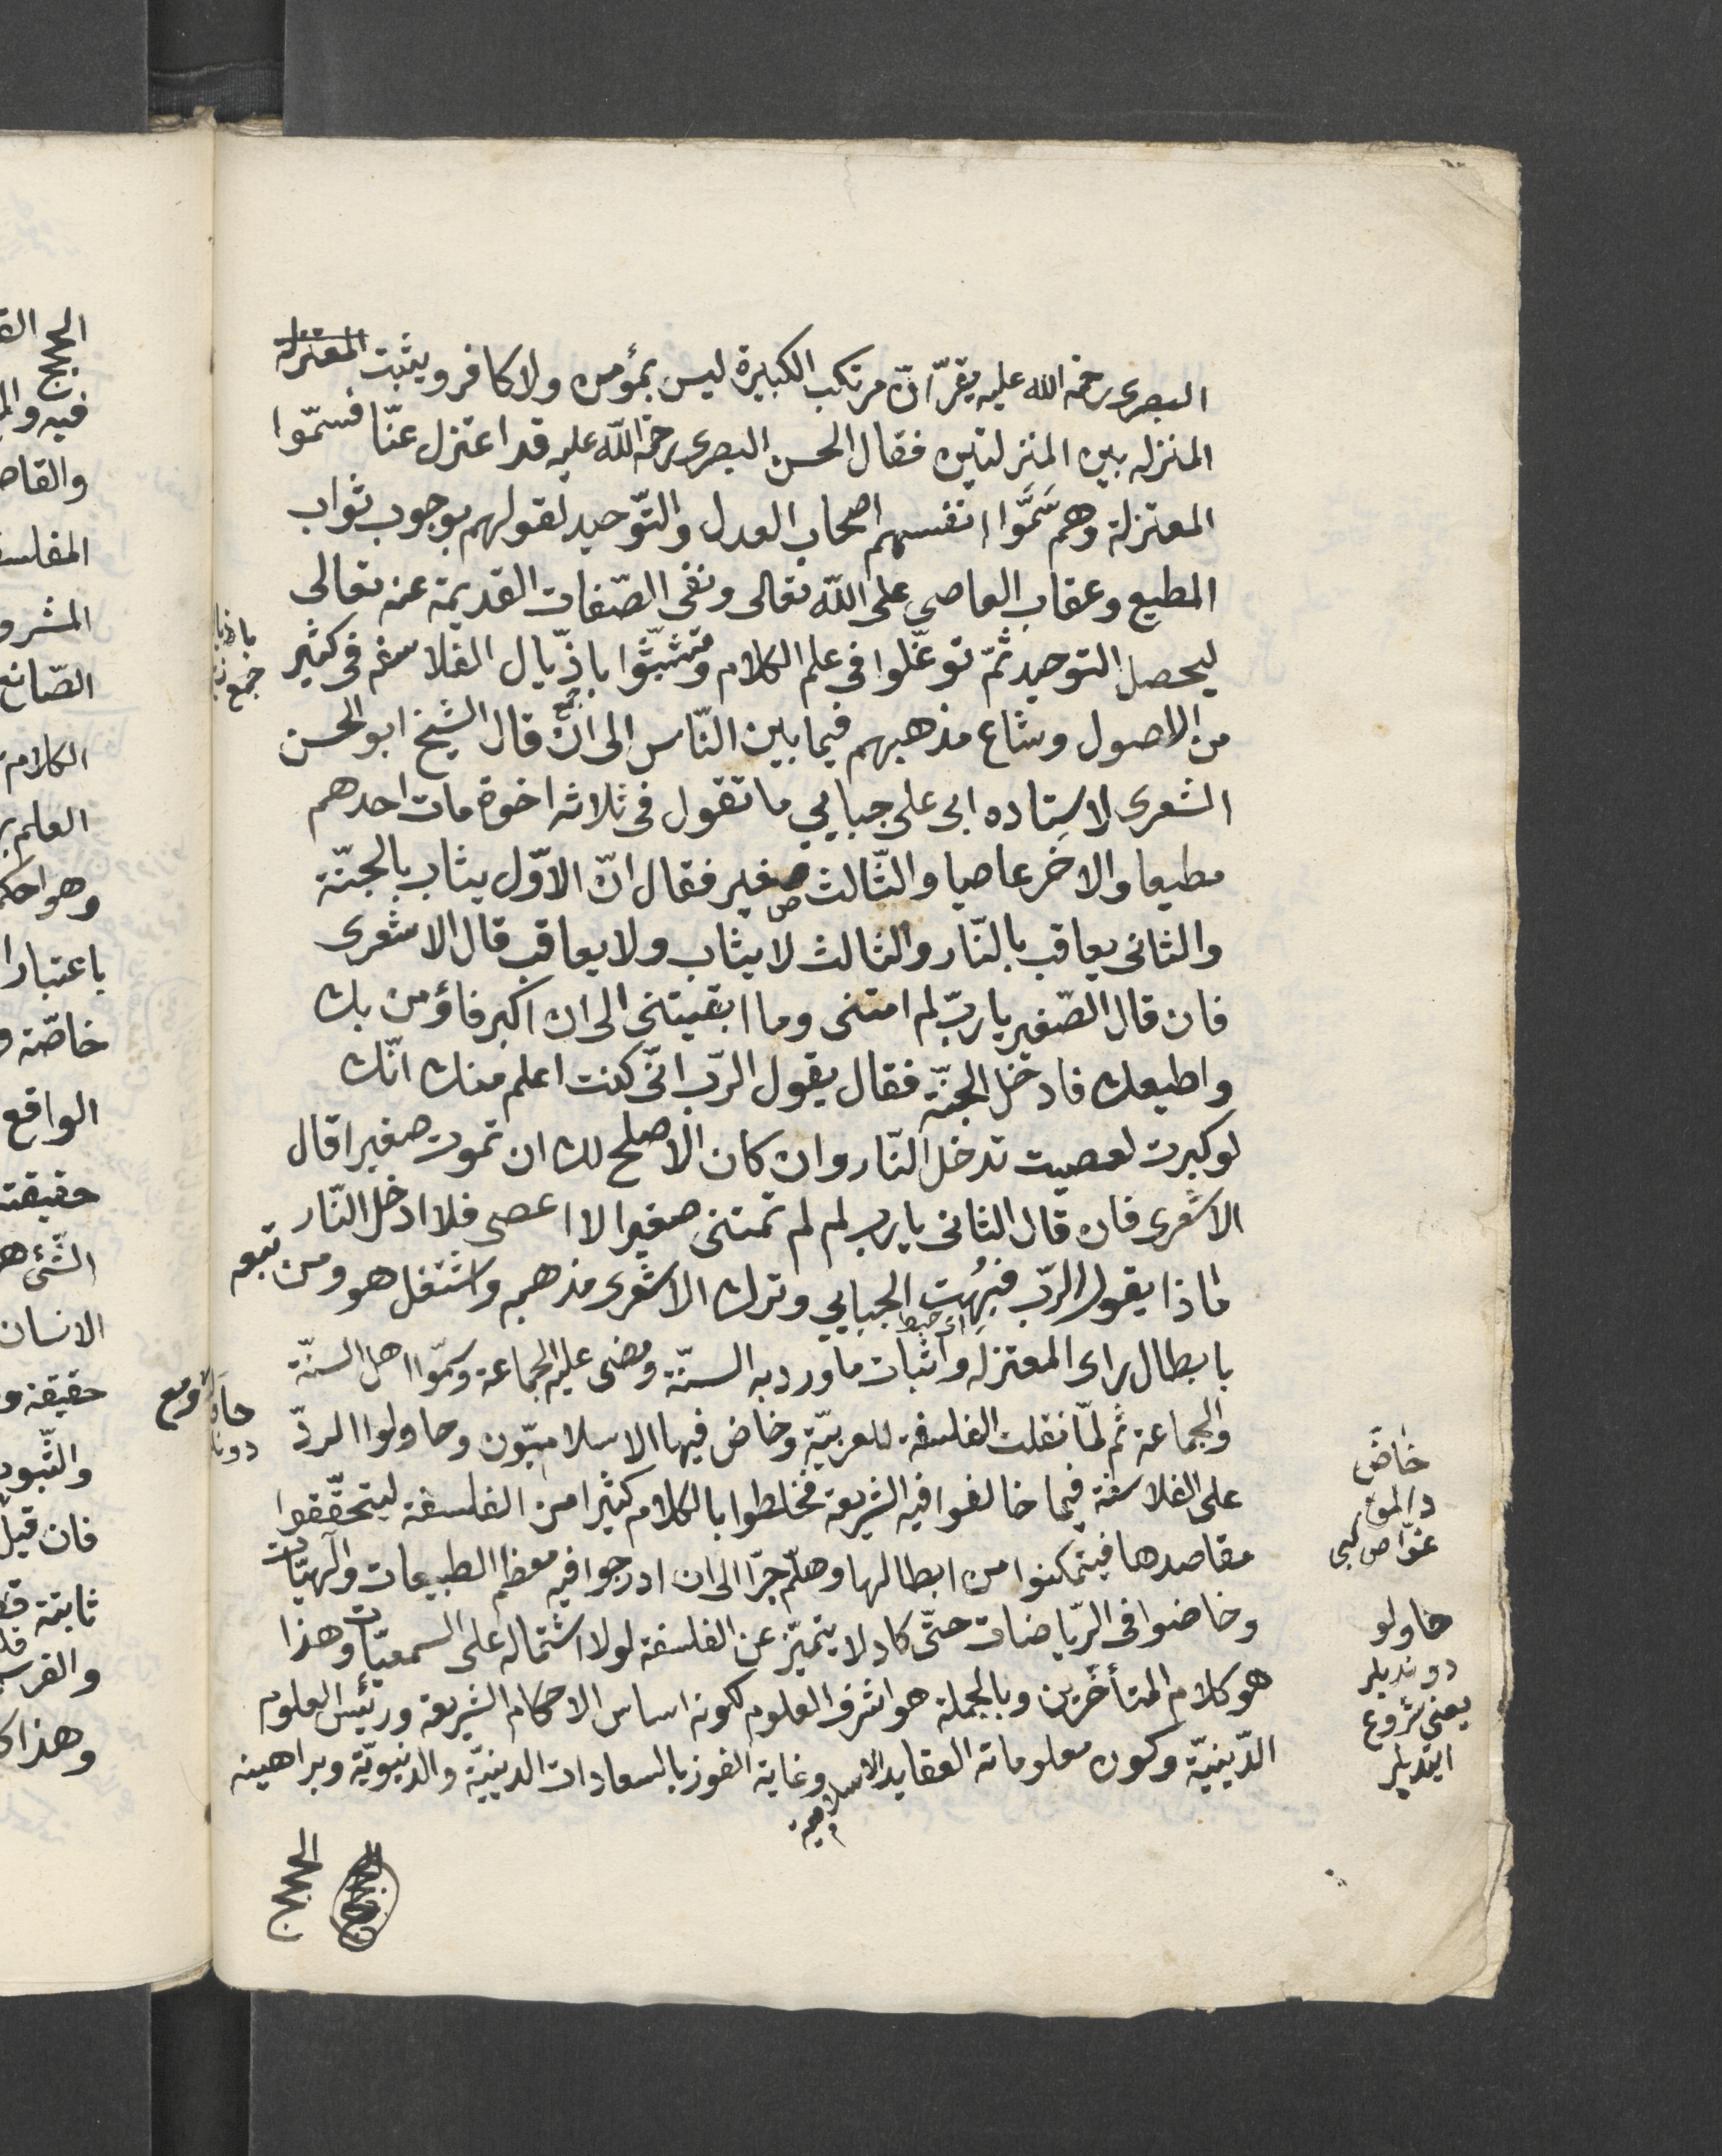 البصرى رحمه الله عليه يقرّ انّ مرتكب الكبيرة ليس بمؤمن ولا كافر ويثبت المعتزلة
المنزله بين المنزلتين فقال الحسن البصرى رحمة اللّه عليه قد اعتزل عنّا فسمّوا
المعتزلة وهم سَمَّوا انفسهم اصحاب العدل والتّوحيد لقولهم بوجوب ثواب
المطيع وعقاب العاصي على اللّه تعالى ونفى الصّفات القديمة عنه تعالى
ليحصل التوحيد ثمّ توغّلوا فى علم الكلام وتشبّثوا باذّيال الفلاسفه فى كثير
من الاصول وشاع مذهبهم فيما بين النّاس الى ان قال الشيخ ابو الحسن
الشعرى لاستِاده ابى على جبايي ما تقول فى ثلاثه اخوة مات احدهم
مطيعا والاخر عاصيا والثّالث صغير فقال انّ الاوّل يثاب بالجنّة
والثانى يعاقب بالنّار والثالث لا يثاب ولا يعاقب قال الاشعرى
فان قال الصّغير يا ربّ لم امتنى وما ابقيتنى الى ان اكبر فاؤمن بك
واطيعك فادخل الجنّة فقال يقول الرّب انّى كنت اعلم منك انّك
لو كبرت لعصيت تدخل النّار وان كان الاصلح لك ان تموت صغيرا قال
الاشعرى فان قال الثانى يا رب لم لم تمتنى صغيرا لا اعصى فلا ادخل النّار
ماذا يقول الرّب فبُهِت الجبايي وترك الاشعرى مذهبه واشتغل هو ومن تبعه
بابطال راى المعتزله واثبات ما ورد به السنّة ومضى عليه الجماعة وسمّوا اهل السنّة
والجماعة ثم لمّا نقلت الفلسفة للعربيّة وخاض فيها الاسلاميّون وحاولوا الردّ
على الفلاسفة فيما خالفوا فيه الشريعة فخلطوا بالكلام كثيرا من الفلسفة ليتحقّقوا
مقاصدها فيتمكنوا من ابطالها وهلّم جرّا الى ان ادرجوا فيه معظم الطبيعات والهيّات
وخاضوا فى الرّياضات حتّى كاد لا يتميّز عن الفلسفة لولا اشتماله على السمعيّات وهذا
هو كلام المتأخّرين وبالجملة هو اشرف العلوم لكونه اساس الاحكام الشريعة ورئيس العلوم
الدّينيّة وكون معلوماته العقايد الاسلاميه وغاية الفوز بالسعادات الدينيّة والدنيويّة وبراهينه
الحجج
خاضَ
دالمق
غوّاص كبى
حاولو
دونديلر
يعنى شروع
ايتديلر